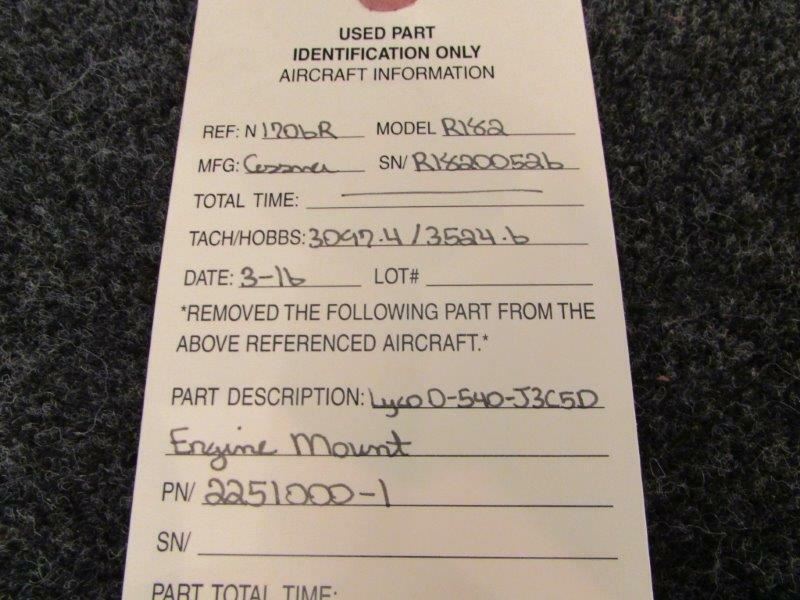 USED PART
IDENTIFICATION ONLY
AIRCRAFT INFORMATION
REF: N 1706R MODEL R182
MFG: Cessna SN/ R18200526
TOTAL TIME:
TACH/HOBBS: 3097.4 / 3524.6
DATE: 3-16 LOT#
*REMOVED THE FOLLOWING PART FROM THE
ABOVE REFERENCED AIRCRAFT.*
PART DESCRIPTION: Lyco O-540-J3C5D
Engine Mount
PN/ 2251000-1
SN/
PART TOTAL TIME: